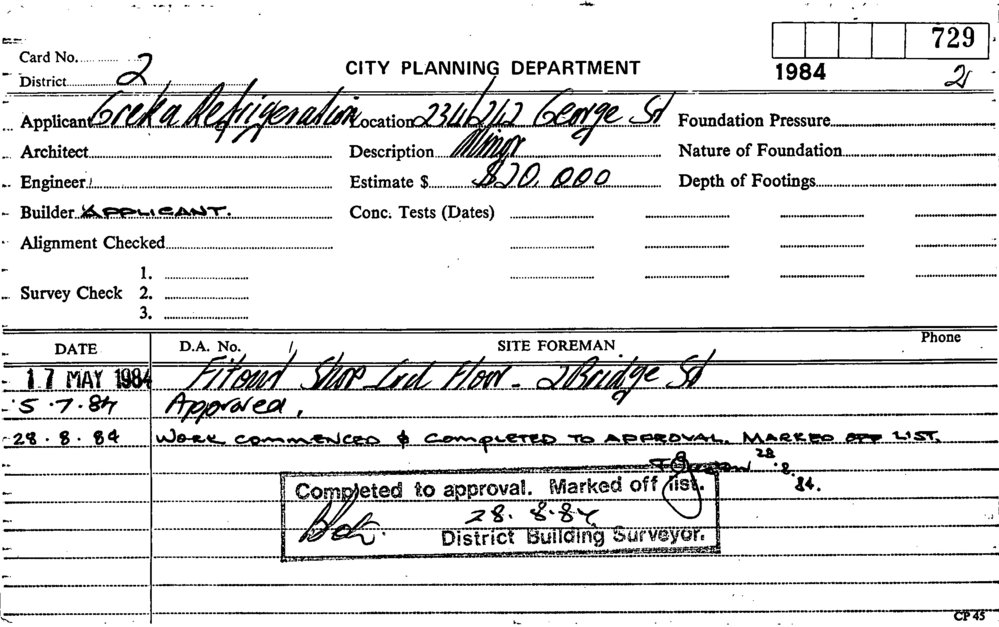 729
Card No.
CITY PLANNING DEPARTMENT
1984
2
District 2
Applicant Greka Refrigeration Location 234/242 George St Foundation Pressure
Architect Description Minor Nature of Foundation
Engineer Estimate $ $20,000 Depth of Footings
Builder APPLICANT. Conc. Tests (Dates)
Alignment Checked
1.
Survey Check 2.
3.
DATE D.A. No. SITE FOREMAN Phone
17 MAY 1984 Fitout Shop Grd Floor - 2 Bridge St
5.7.84 Approved.
28.8.84 WORK COMMENCED & COMPLETED TO APPROVAL. MARKED OFF LIST.
28.8.84.
Completed to approval. Marked off list.
28.8.84
District Building Surveyor.
CP 45